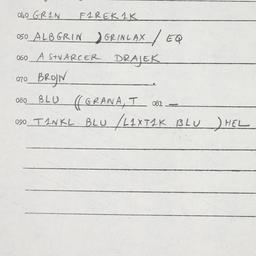 040 GRIN FIREKIK
050 ALBGRIN )GRINLAX / EQ
060 ASTVARCER DRAJEK
070 BROJN
080 BLU (( GRANA, T 081 —
090 TINKL BLU /LIXTIK BLU ) HEL